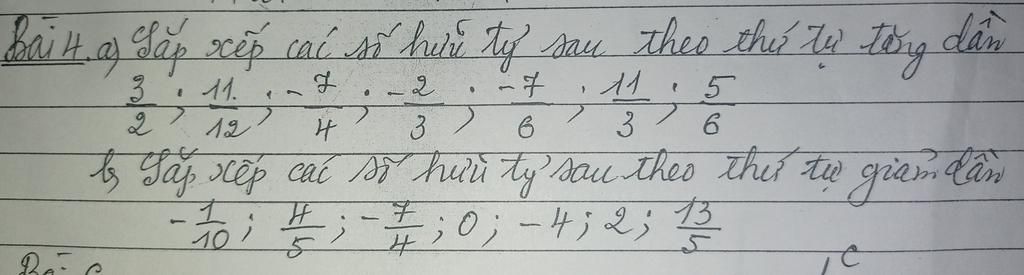 Bài 4. a) Sắp xếp các số hữu tỷ sau theo thứ tự tăng dần
3/2 ; 11/12 ; -7/4 ; -2/3 ; -7/6 ; 11/3 ; 5/6
b) Sắp xếp các số hữu tỷ sau theo thứ tự giảm dần
-1/10 ; 4/5 ; -7/4 ; 0 ; -4 ; 2 ; 13/5